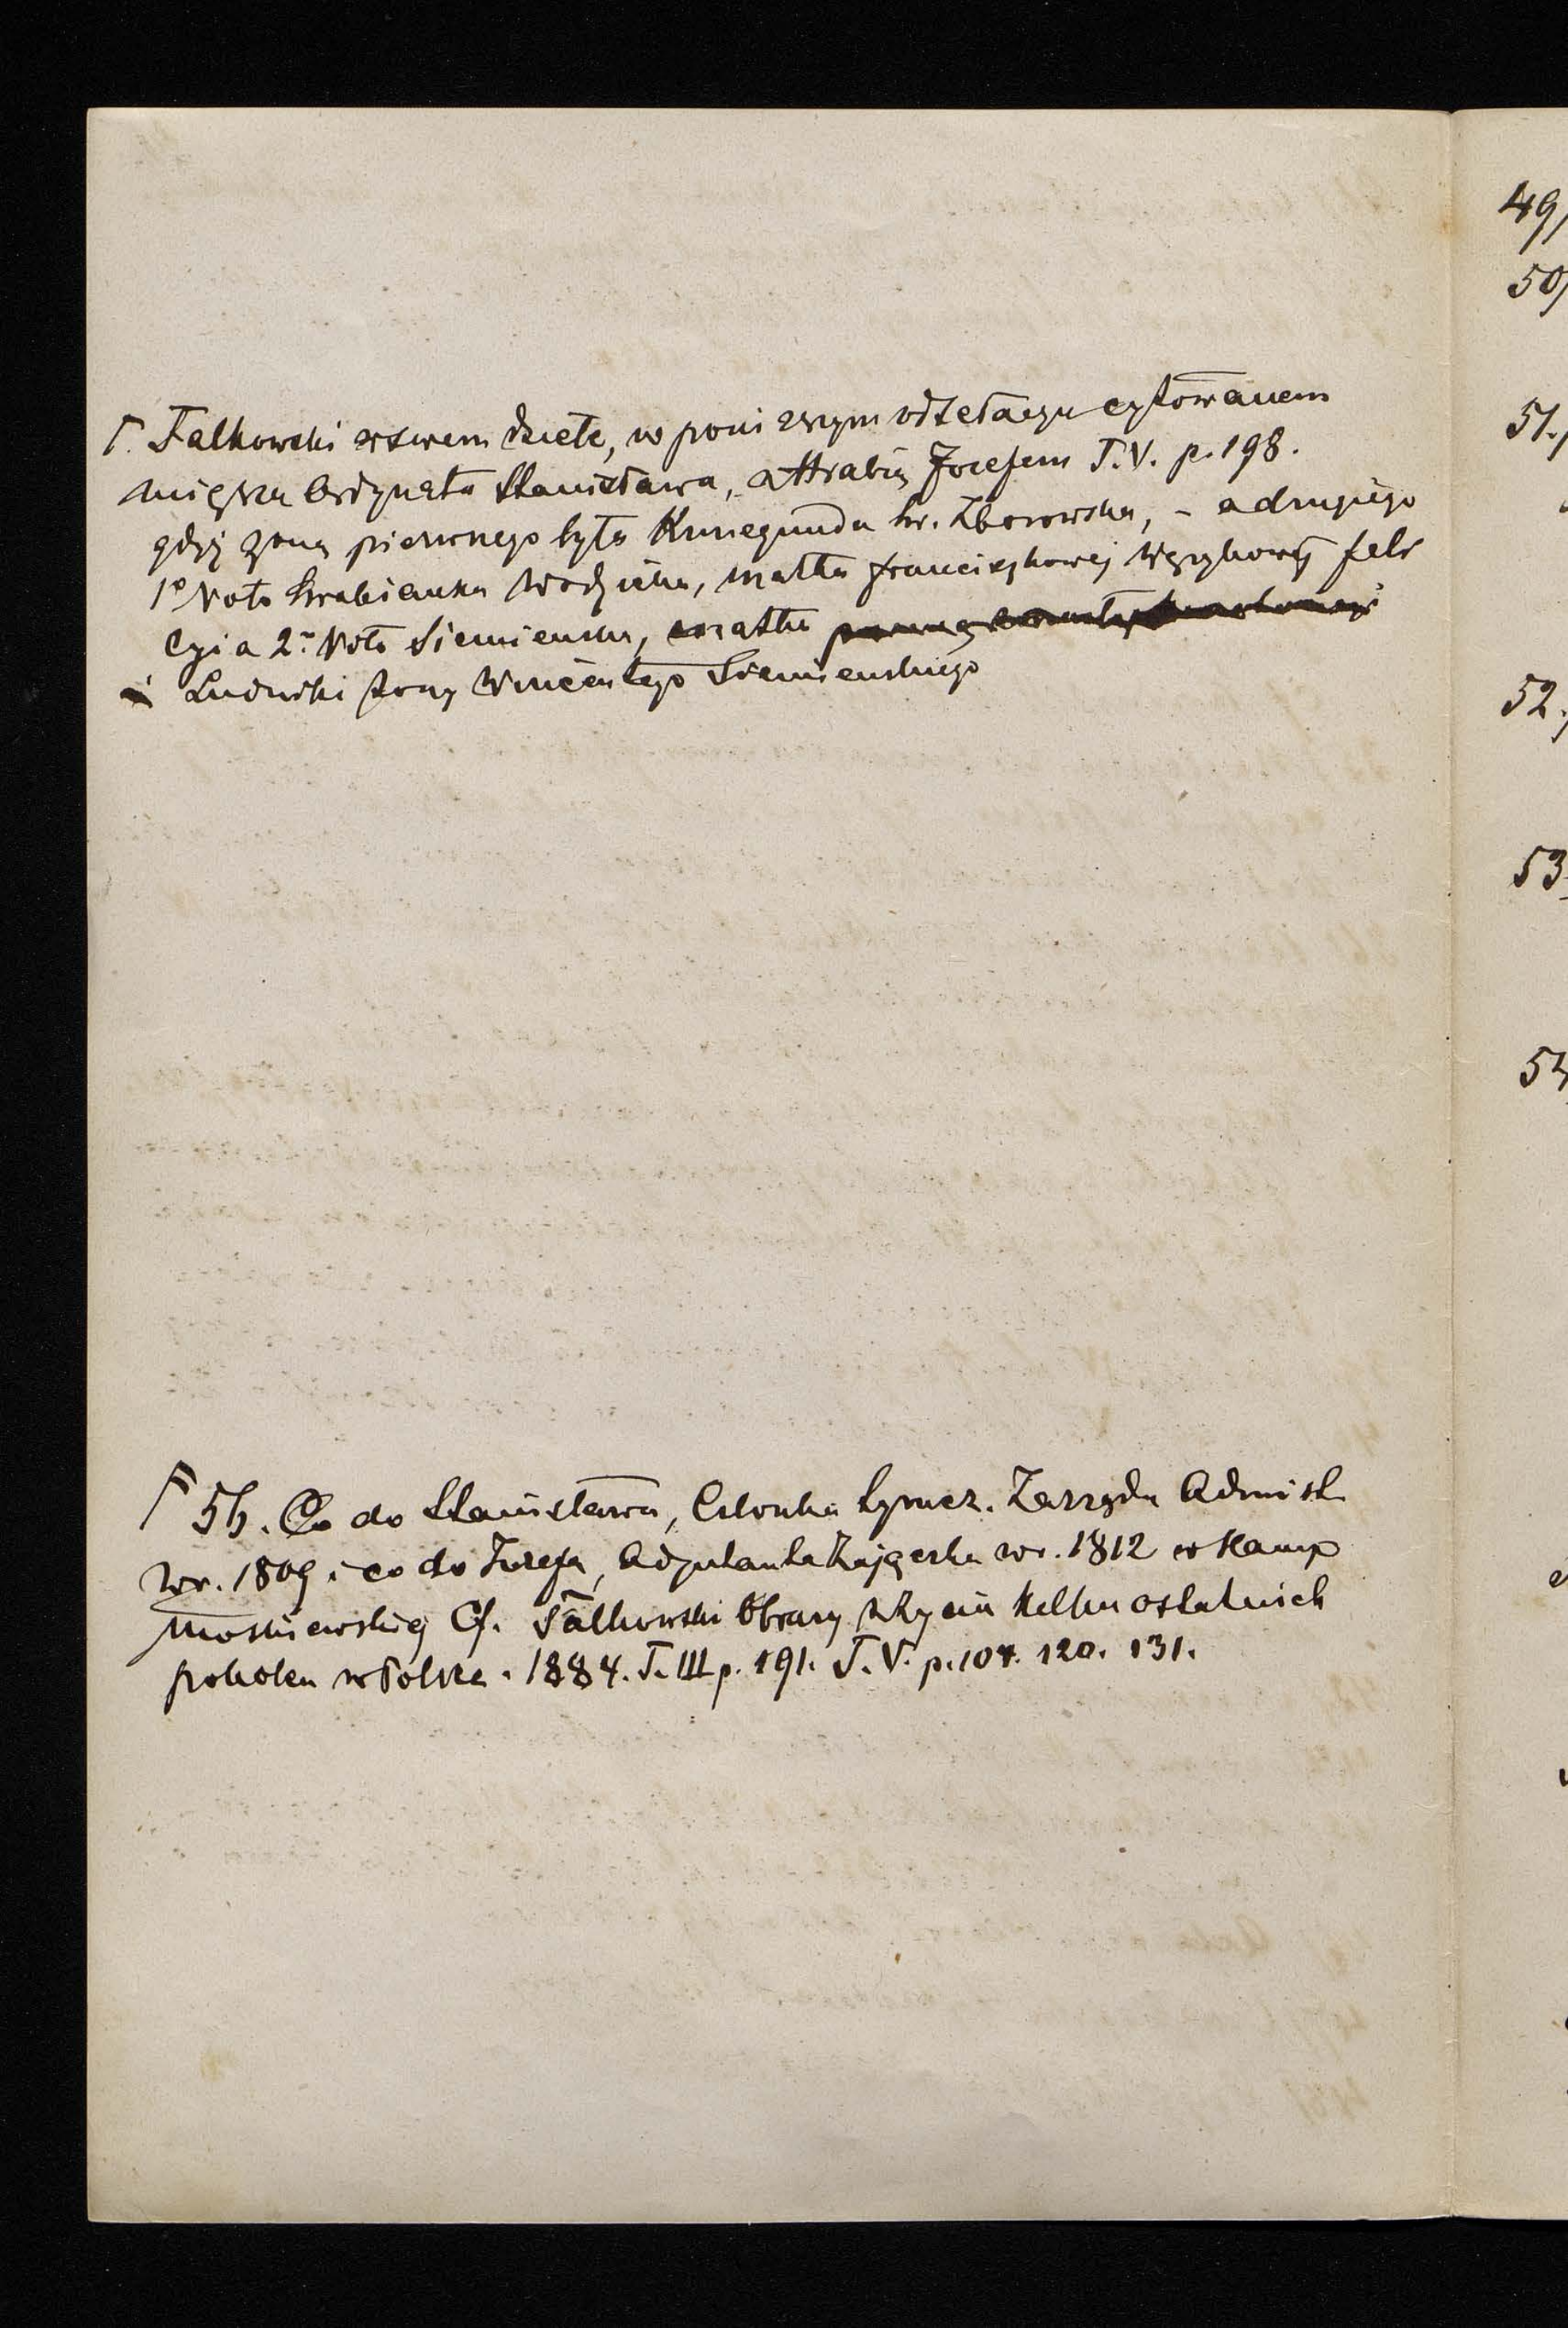 Γ. Falkowski w swem dziele, w poniższym odsełaczu cytowanem
miesza Ordynata Stanisława, z Hrabią Józefem T.V. p. 198.
gdyż żoną pierwszego była Kunegunda hr. Zborowska, - a drugiego
1º Voto hrabianka Wodzicka, matka Franciszkowej Wężykowej Feli
cyi a 2º Voto Siemieńska, matka
i Ludwiki żony Wincentego Siemieńskiego
Γ 56. Co do Stanisława, Członka tymcz. Zarządu Admist.
w r. 1809 i co do Józefa, Adjutanta Zajączka w r. 1812 w Kamp
moskiewskiej Cf. Falkowski Obrazy z życia kilku ostatnich
pokoleń w Polsce. 1884. T. III p. 191. T. V. p. 107. 120. 131.
49/
50/
51./
52./
53
54